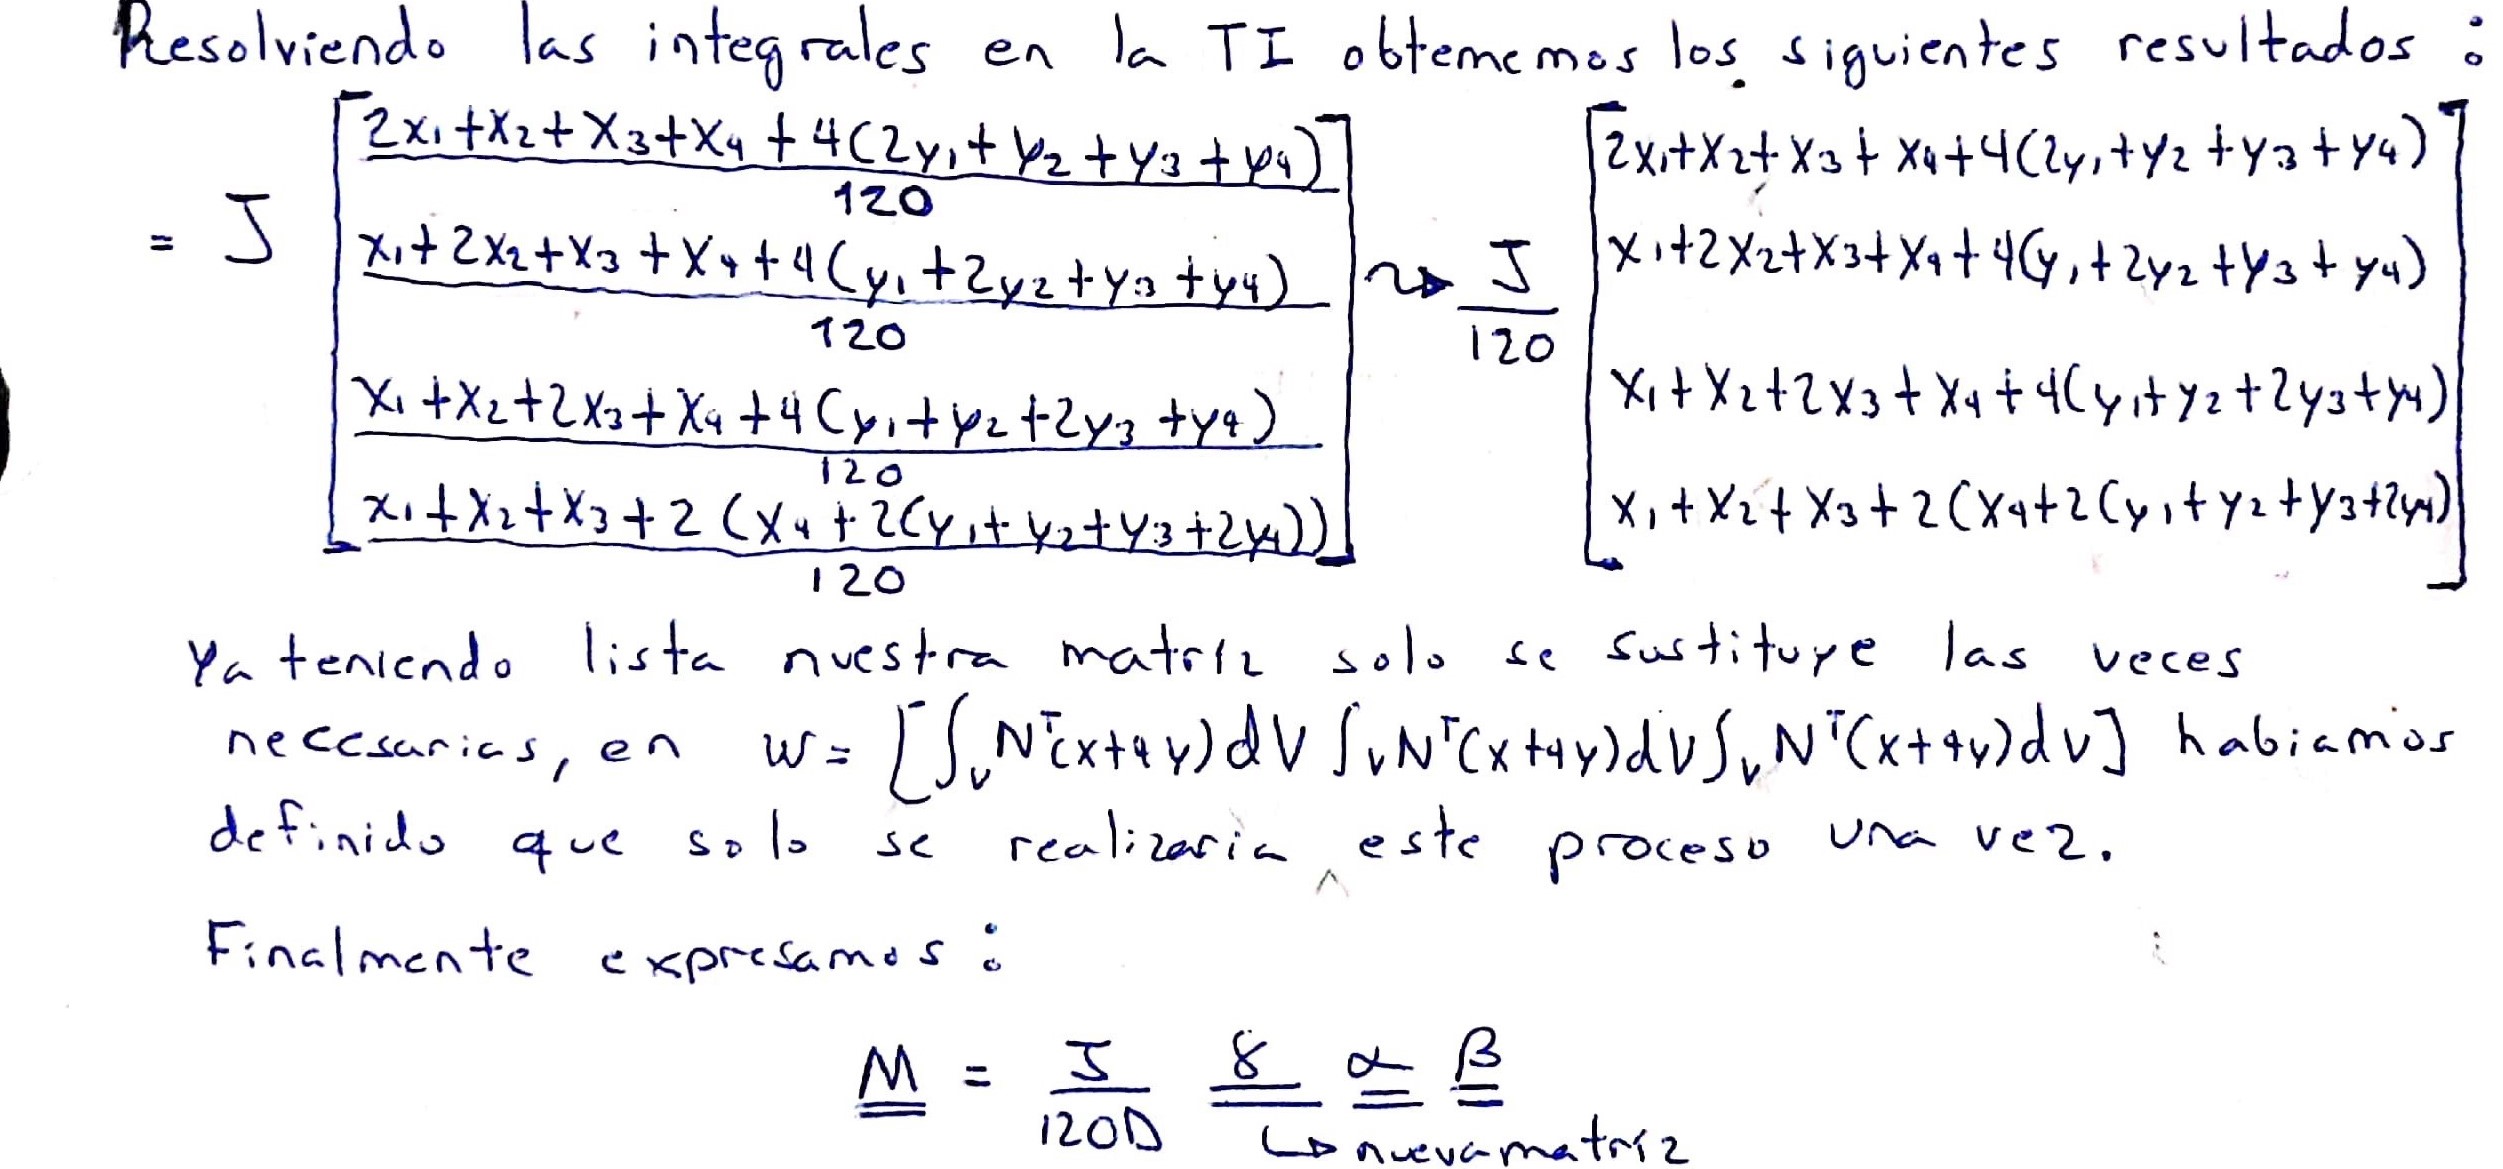 Resolviendo las integrales en la TI obtememos los siguientes resultados :
= J [ (2x₁+x₂+x₃+x₄+4(2y₁+y₂+y₃+y₄))/120 ] ⇝ J/120 [ 2x₁+x₂+x₃+x₄+4(2y₁+y₂+y₃+y₄) ]
[ (x₁+2x₂+x₃+x₄+4(y₁+2y₂+y₃+y₄))/120 ] [ x₁+2x₂+x₃+x₄+4(y₁+2y₂+y₃+y₄) ]
[ (x₁+x₂+2x₃+x₄+4(y₁+y₂+2y₃+y₄))/120 ] [ x₁+x₂+2x₃+x₄+4(y₁+y₂+2y₃+y₄) ]
[ (x₁+x₂+x₃+2(x₄+2(y₁+y₂+y₃+2y₄)))/120 ] [ x₁+x₂+x₃+2(x₄+2(y₁+y₂+y₃+2y₄) ]
Ya teniendo lista nuestra matriz solo se sustituye las veces
necesarias, en w = [∫ᵥ Nᵀ(x+4y)dV ∫ᵥ Nᵀ(x+4y)dV ∫ᵥ Nᵀ(x+4y)dV] habiamos
definido que solo se realizaria este proceso una vez.
Finalmente expresamos :
M = J/120D γ α β
↳ nueva matriz